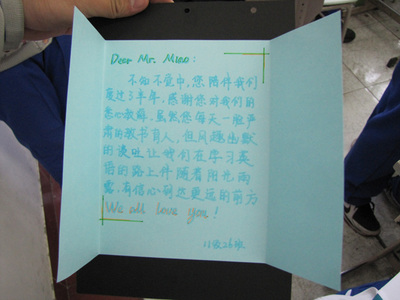 Dear Mr. Miao:
不知不觉中,您陪伴我们
度过了半年,感谢您对我们的
悉心教导,虽然您每天一脸严
肃的教书育人,但风趣幽默
的谈吐让我们在学习英
语的路上伴随着阳光雨
露,有信心到达更远的前方
We all love you!
11级26班